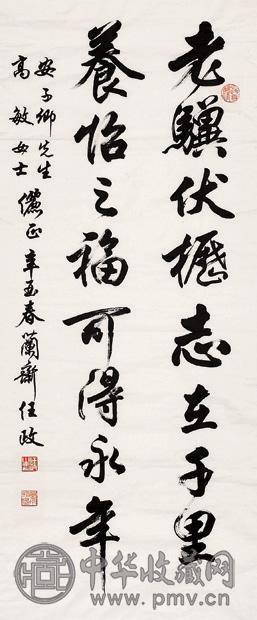 老驥伏櫪志在千里
養怡之福可得永年
安子卿先生
高敏女士
儷正 辛酉春蘭齋任政
中华收藏网
www.pmv.cn